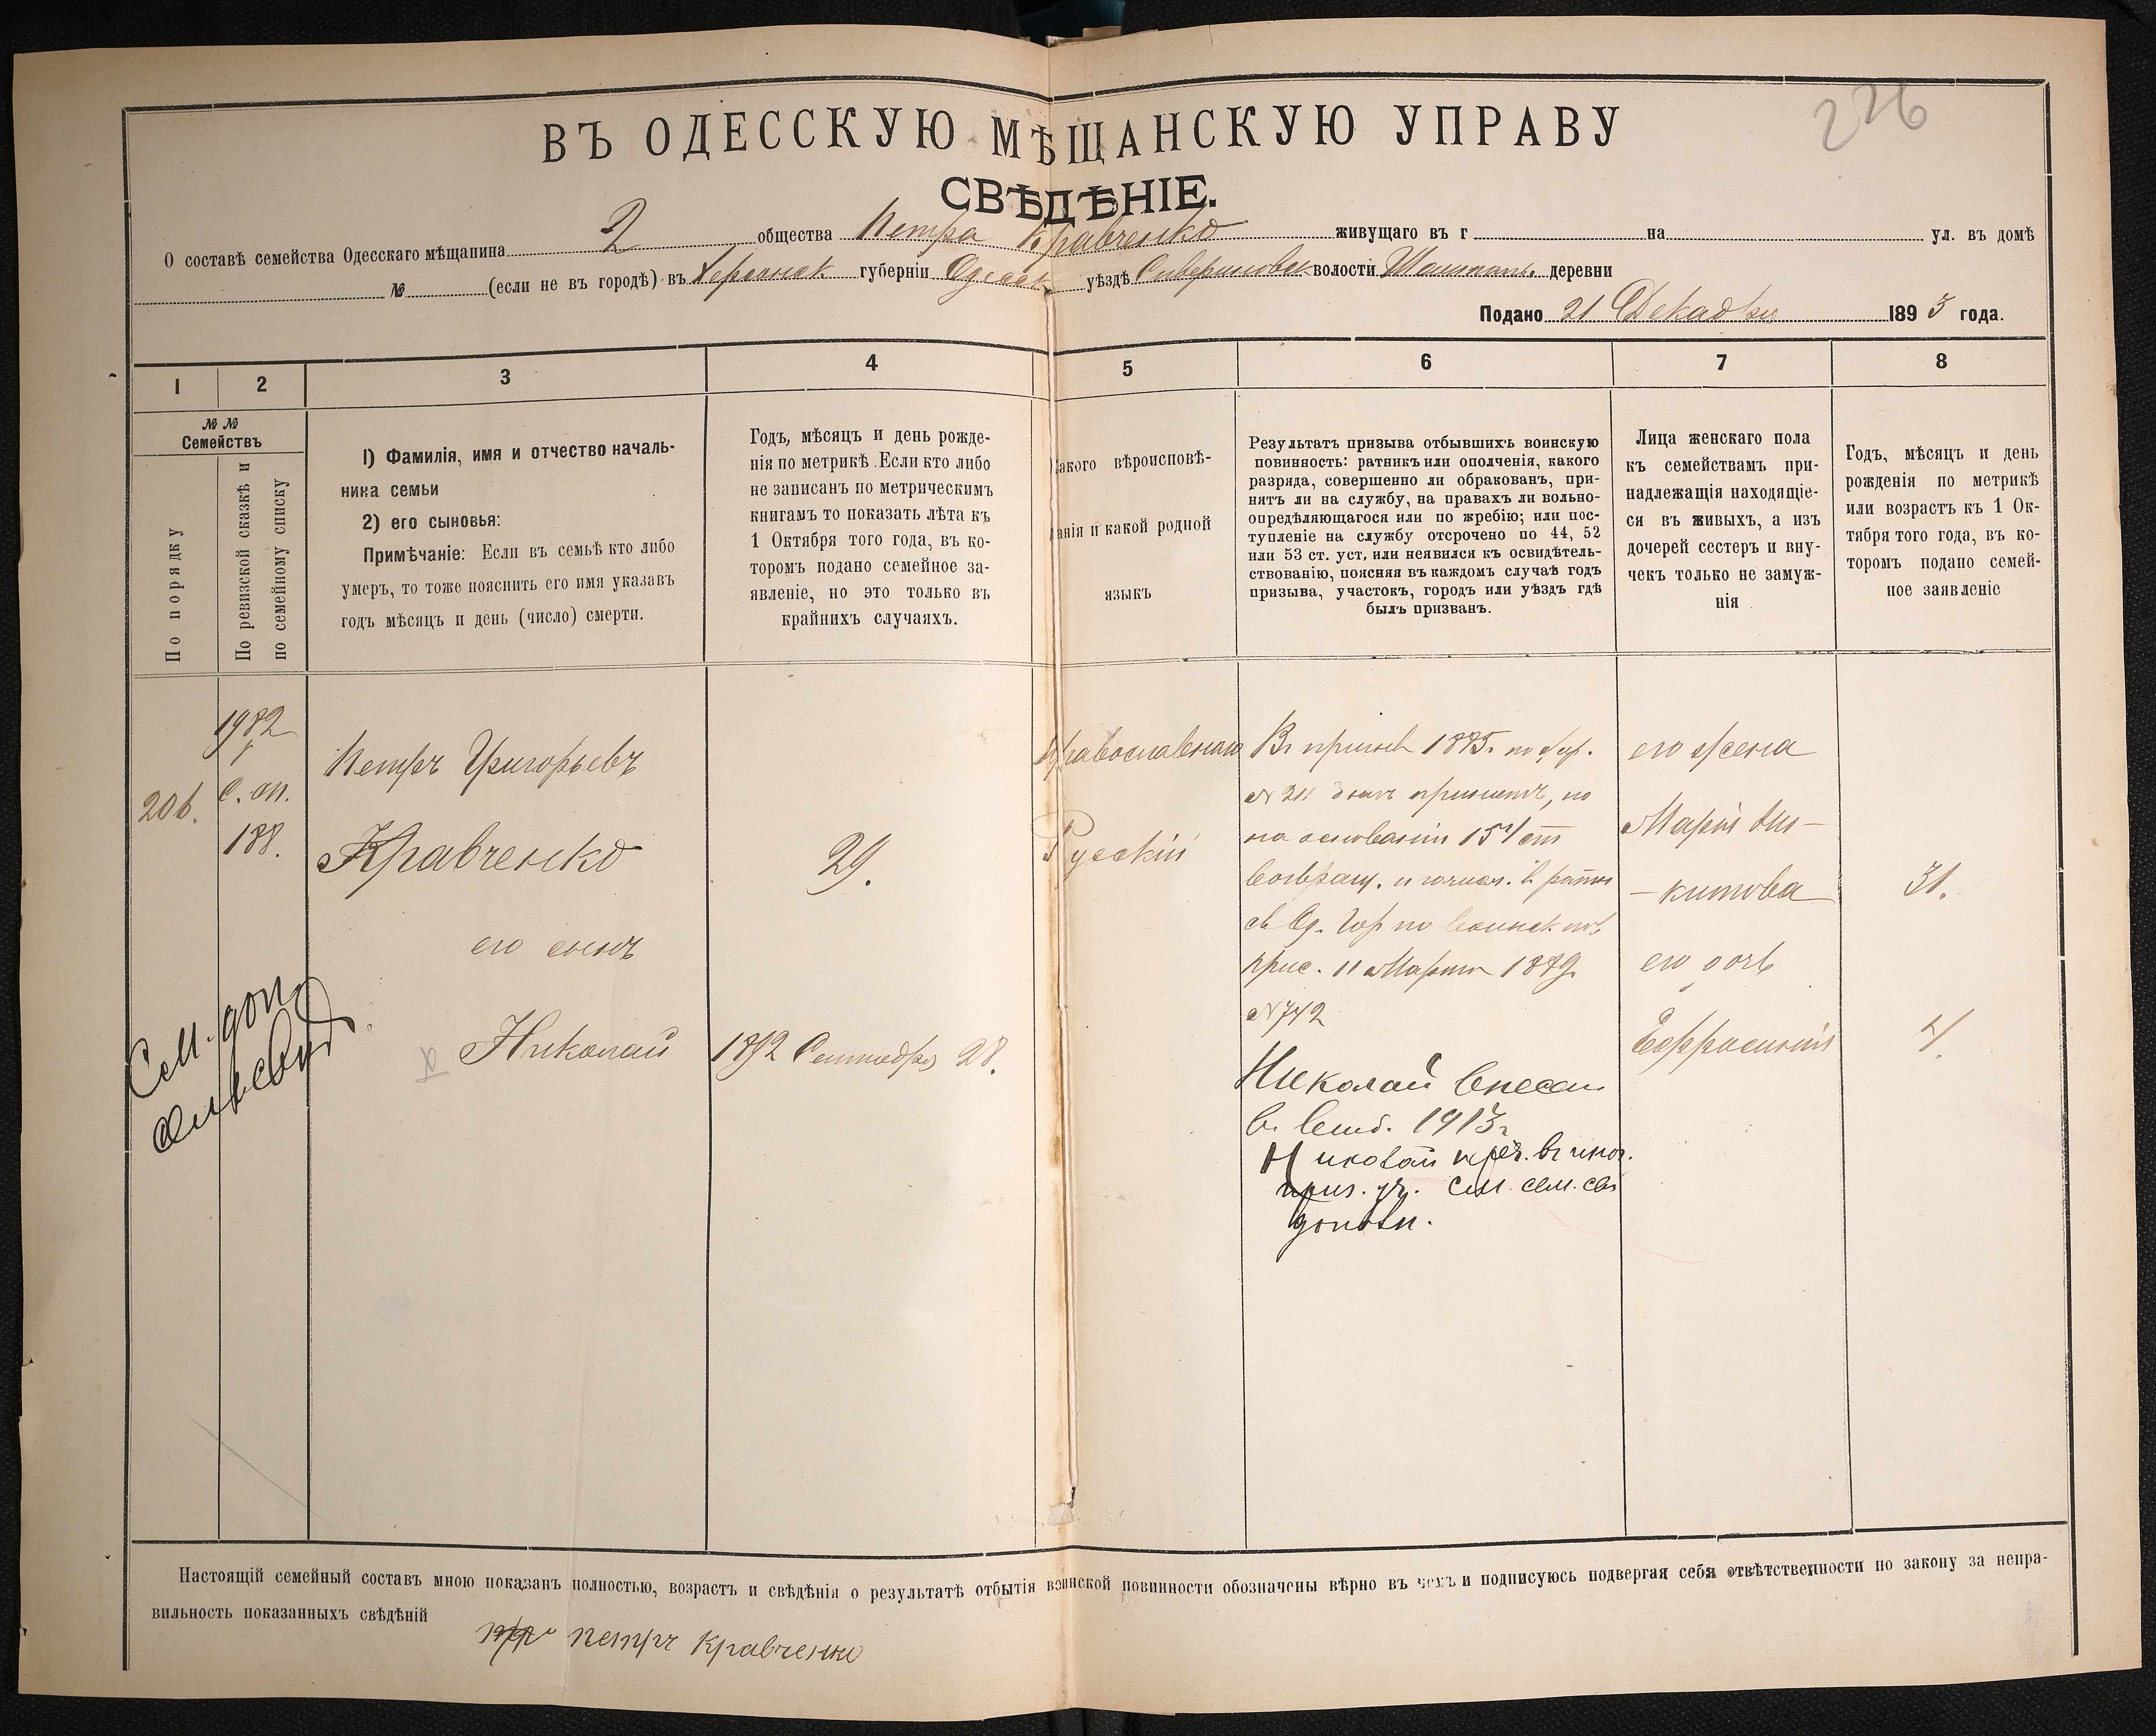 226
ВЪ ОДЕССКУЮ МѢЩАНСКУЮ УПРАВУ
СВѢДѢНІЕ.
О составѣ семейства Одесскаго мѣщанина 2 общества Петра Кравченко живущаго въ г на ул. въ домѣ
№ (если не въ городѣ) въ Херсонск губерніи Одесск уѣздѣ Сивериновск волости деревни
Подано 21 Декабря 1893 года.
1 2 3 4 5 6 7 8
№ №
Семействъ
По порядку
По ревизской сказкѣ и
по семейному списку
1) Фамилія, имя и отчество началь-
ника семьи
2) его сыновья:
Примѣчаніе: Если въ семьѣ кто либо
умеръ, то тоже пояснить его имя указавъ
годъ мѣсяцъ и день (число) смерти.
Годъ, мѣсяцъ и день рожде-
нія по метрикѣ. Если кто либо
не записанъ по метрическимъ
книгамъ то показать лѣта къ
1 Октября того года, въ ко-
торомъ подано семейное за-
явленіе, но это только въ
крайнихъ случаяхъ.
акого вѣроисповѣ-
анія и какой родной
языкъ
Результатъ призыва отбывшихъ воинскую
повинность: ратникъ или ополченія, какого
разряда, совершенно ли обракованъ, при-
нятъ ли на службу, на правахъ ли вольно-
опредѣляющагося или по жребію; или пос-
тупленіе на службу отсрочено по 44, 52
или 53 ст. уст, или неявился къ освидѣтель-
ствованію, поясняя въ каждомъ случаѣ годъ
призыва, участокъ, городъ или уѣздъ гдѣ
былъ призванъ.
Лица женскаго пола
къ семействамъ при-
надлежащія находящіе-
ся въ живыхъ, а изъ
дочерей сестеръ и вну-
чекъ только не замуж-
нія
Годъ, мѣсяцъ и день
рожденія по метрикѣ
или возрастъ къ 1 Ок-
тября того года, въ ко-
торомъ подано семей-
ное заявленіе
206.
1982
с. оп.
188.
Петръ Григорьевъ
Кравченко
его сынъ
Николай
29.
1892 Сентября 28.
Православнаго
Русскій
Въ призывѣ 1885 г. по
№ 211 былъ принятъ, но
на основаніи 154 ст
возвращ. и зачисл. в ратн
Од. Гор по воинск пов
прис. 11 Марта 1889
№ 742
Николай внесен
в 1913 г
Николай
приз. уч. См. сем. св
дополн.
его жена
Марія Ни-
-китова
его дочь
Ефросинія
31.
4.
См. доп.
Настоящій семейный составъ мною показанъ полностью, возрастъ и свѣдѣнія о результатѣ отбытія воинской повинности обозначены вѣрно въ чемъ и подписуюсь подвергая себя отвѣтственности по закону за непра-
вильность показанныхъ свѣдѣній
петръ кравченко